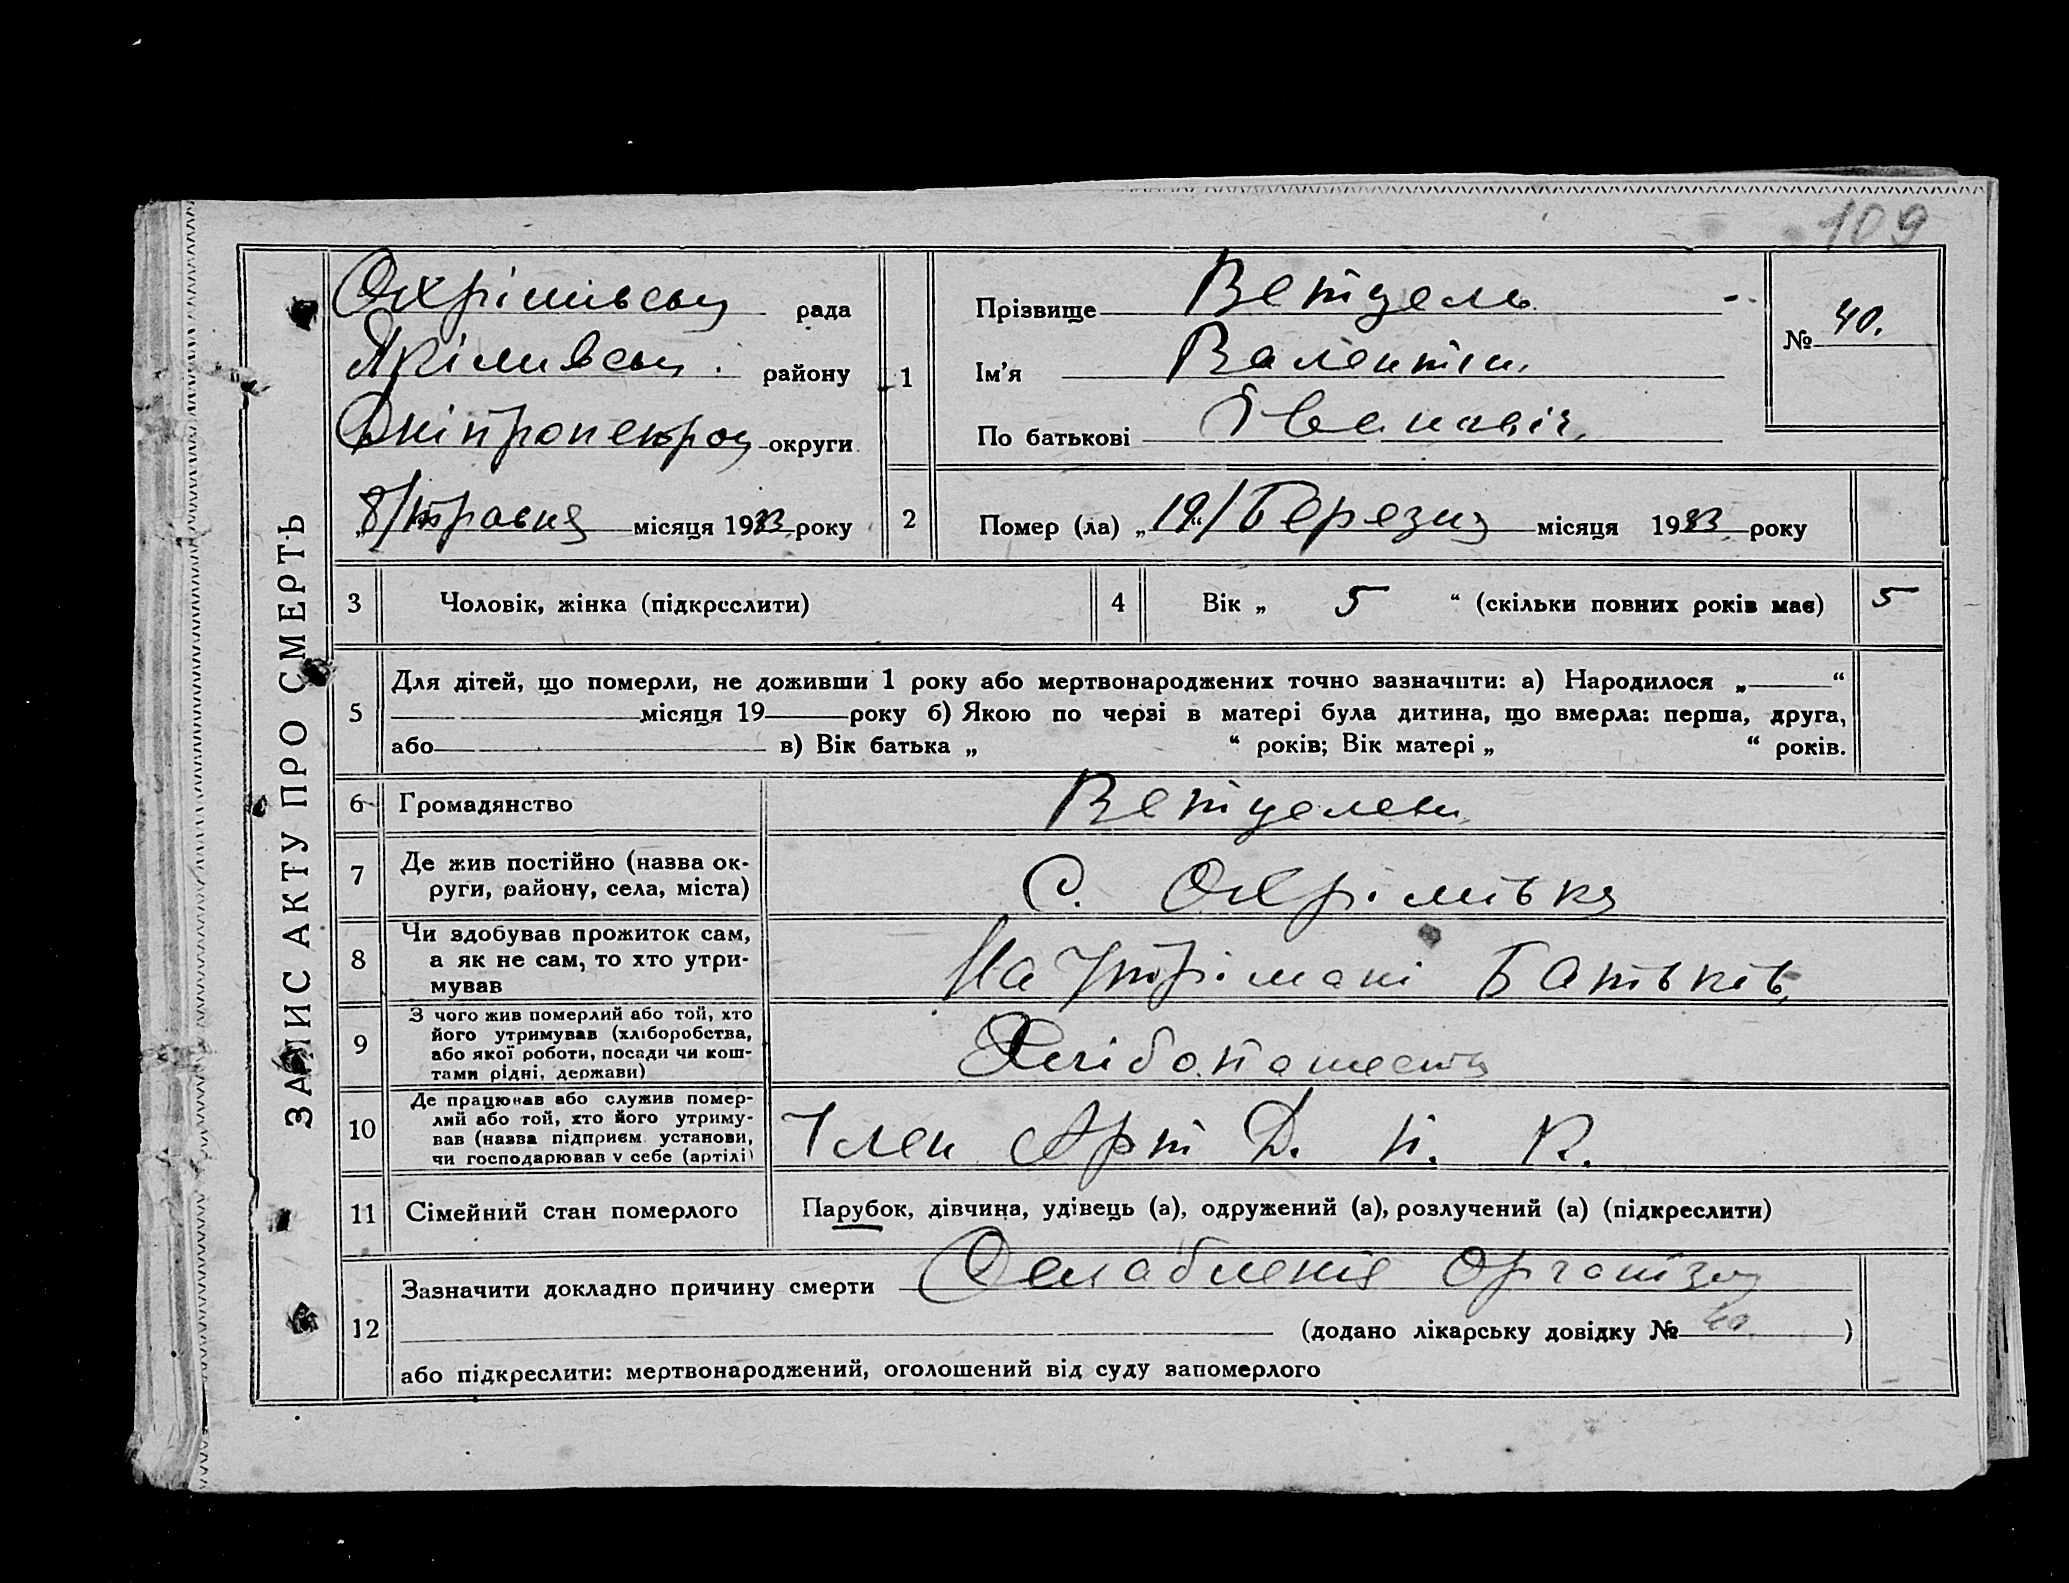 109
ЗАПИС АКТУ ПРО СМЕРТЬ
Охрімівськ рада
Якімивськ. району
Дніпропетров округи
„8/травня місяця 1933 року
1
Прізвище Ветцель
Ім’я Валентін
По батькові Іванавіч
№ 40.
2
Помер (ла) „19“/Березня місяця 1933 року
3 Чоловік, жінка (підкреслити)
4 Вік „ 5 “ (скільки повних років має) 5
5
Для дітей, що померли, не доживши 1 року або мертвонароджених точно зазначити: а) Народилося „ “
місяця 19 року б) Якою по черві в матері була дитина, що вмерла: перша, друга,
або в) Вік батька „ “ років; Вік матері „ “ років.
6 Громадянство
7 Де жив постійно (назва ок-
руги, району, села, міста)
С. Охрімівка
8 Чи здобував прожиток сам,
а як не сам, то хто утри-
мував
На Утрімані Батьків
9 З чого жив померлий або той, хто
його утримував (хліборобства,
або якої роботи, посади чи кош-
тами рідні, держави)
10 Де працював або служив помер-
лий або той, хто його утриму-
вав (назва підприєм. установи,
чи господарював у себе (артілі)
Член Арт Д. Н. К.
11 Сімейний стан померлого
Парубок, дівчина, удівець (а), одружений (а), розлучений (а) (підкреслити)
12
Зазначити докладно причину смерти Ослабленія Організму
(додано лікарську довідку № 40. )
або підкреслити: мертвонароджений, оголошений від суду запомерлого